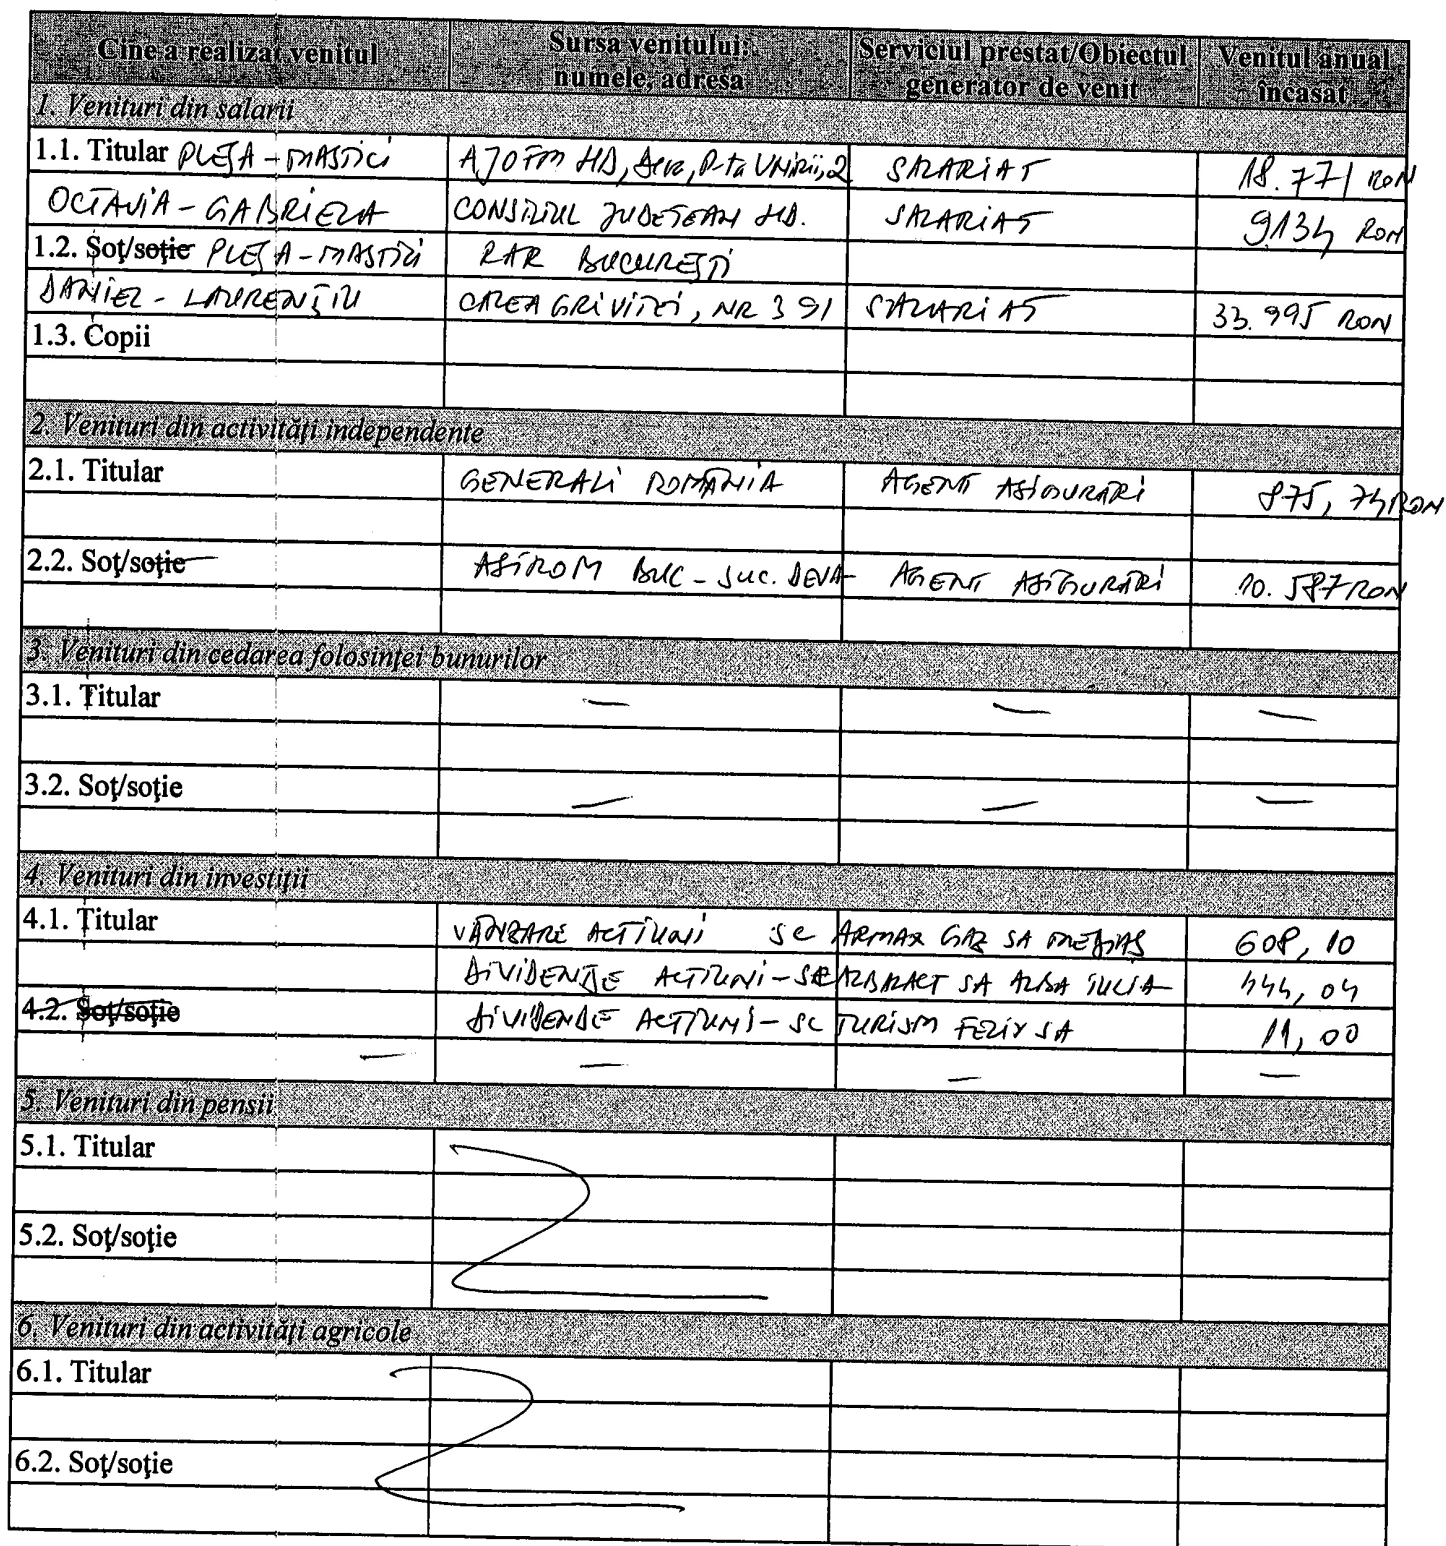 Cine a realizat venitul Sursa venitului: numele, adresa Serviciul prestat/Obiectul generator de venit Venitul anual încasat
1. Venituri din salarii
1.1. Titular PLEȘA-MASTICI AJOFM HD, Deva, P-ta UNIRII, 2 SALARIAT 18.771 RON
OCTAVIA-GABRIELA CONSILIUL JUDETEAN HD. SALARIAT 9134 RON
1.2. Soţ/soţie PLEȘA-MASTICI RAR BUCUREȘTI
DANIEL-LAURENȚIU CALEA GRIVITEI, NR 391 SALARIAT 33.995 RON
1.3. Copii
2. Venituri din activităţi independente
2.1. Titular GENERALI ROMÂNIA AGENT ASIGURĂRI 875,74 RON
2.2. Soţ/soţie ASIROM BUC-SUC. DEVA AGENT ASIGURĂRI 10.587 RON
3. Venituri din cedarea folosinţei bunurilor
3.1. Titular — — —
3.2. Soţ/soţie — — —
4. Venituri din investiţii
4.1. Titular VÂNZARE ACTIUNI SC ARMAX GAZ SA MEDIAȘ 608,10
DIVIDENDE ACTIUNI-SC ALBALACT SA ALBA IULIA 444,04
4.2. Soţ/soţie DIVIDENDE ACTIUNI-SC TURISM FELIX SA 11,00
— — — —
5. Venituri din pensii
5.1. Titular
5.2. Soţ/soţie
6. Venituri din activităţi agricole
6.1. Titular
6.2. Soţ/soţie